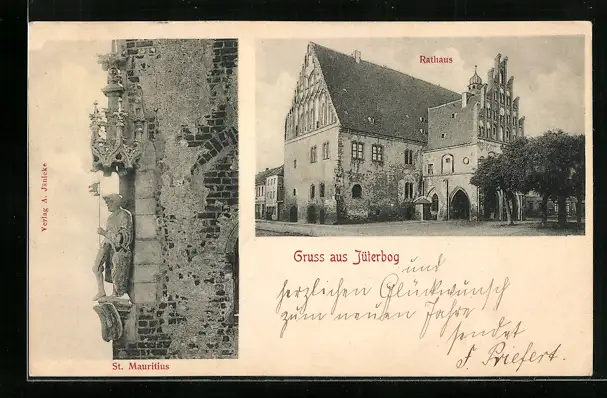 Rathaus
Verlag A. Jänicke
Gruss aus Jüterbog
und
herzlichen Glückwunsch
zum neuen Jahre
sendet
F. Priefert.
St. Mauritius